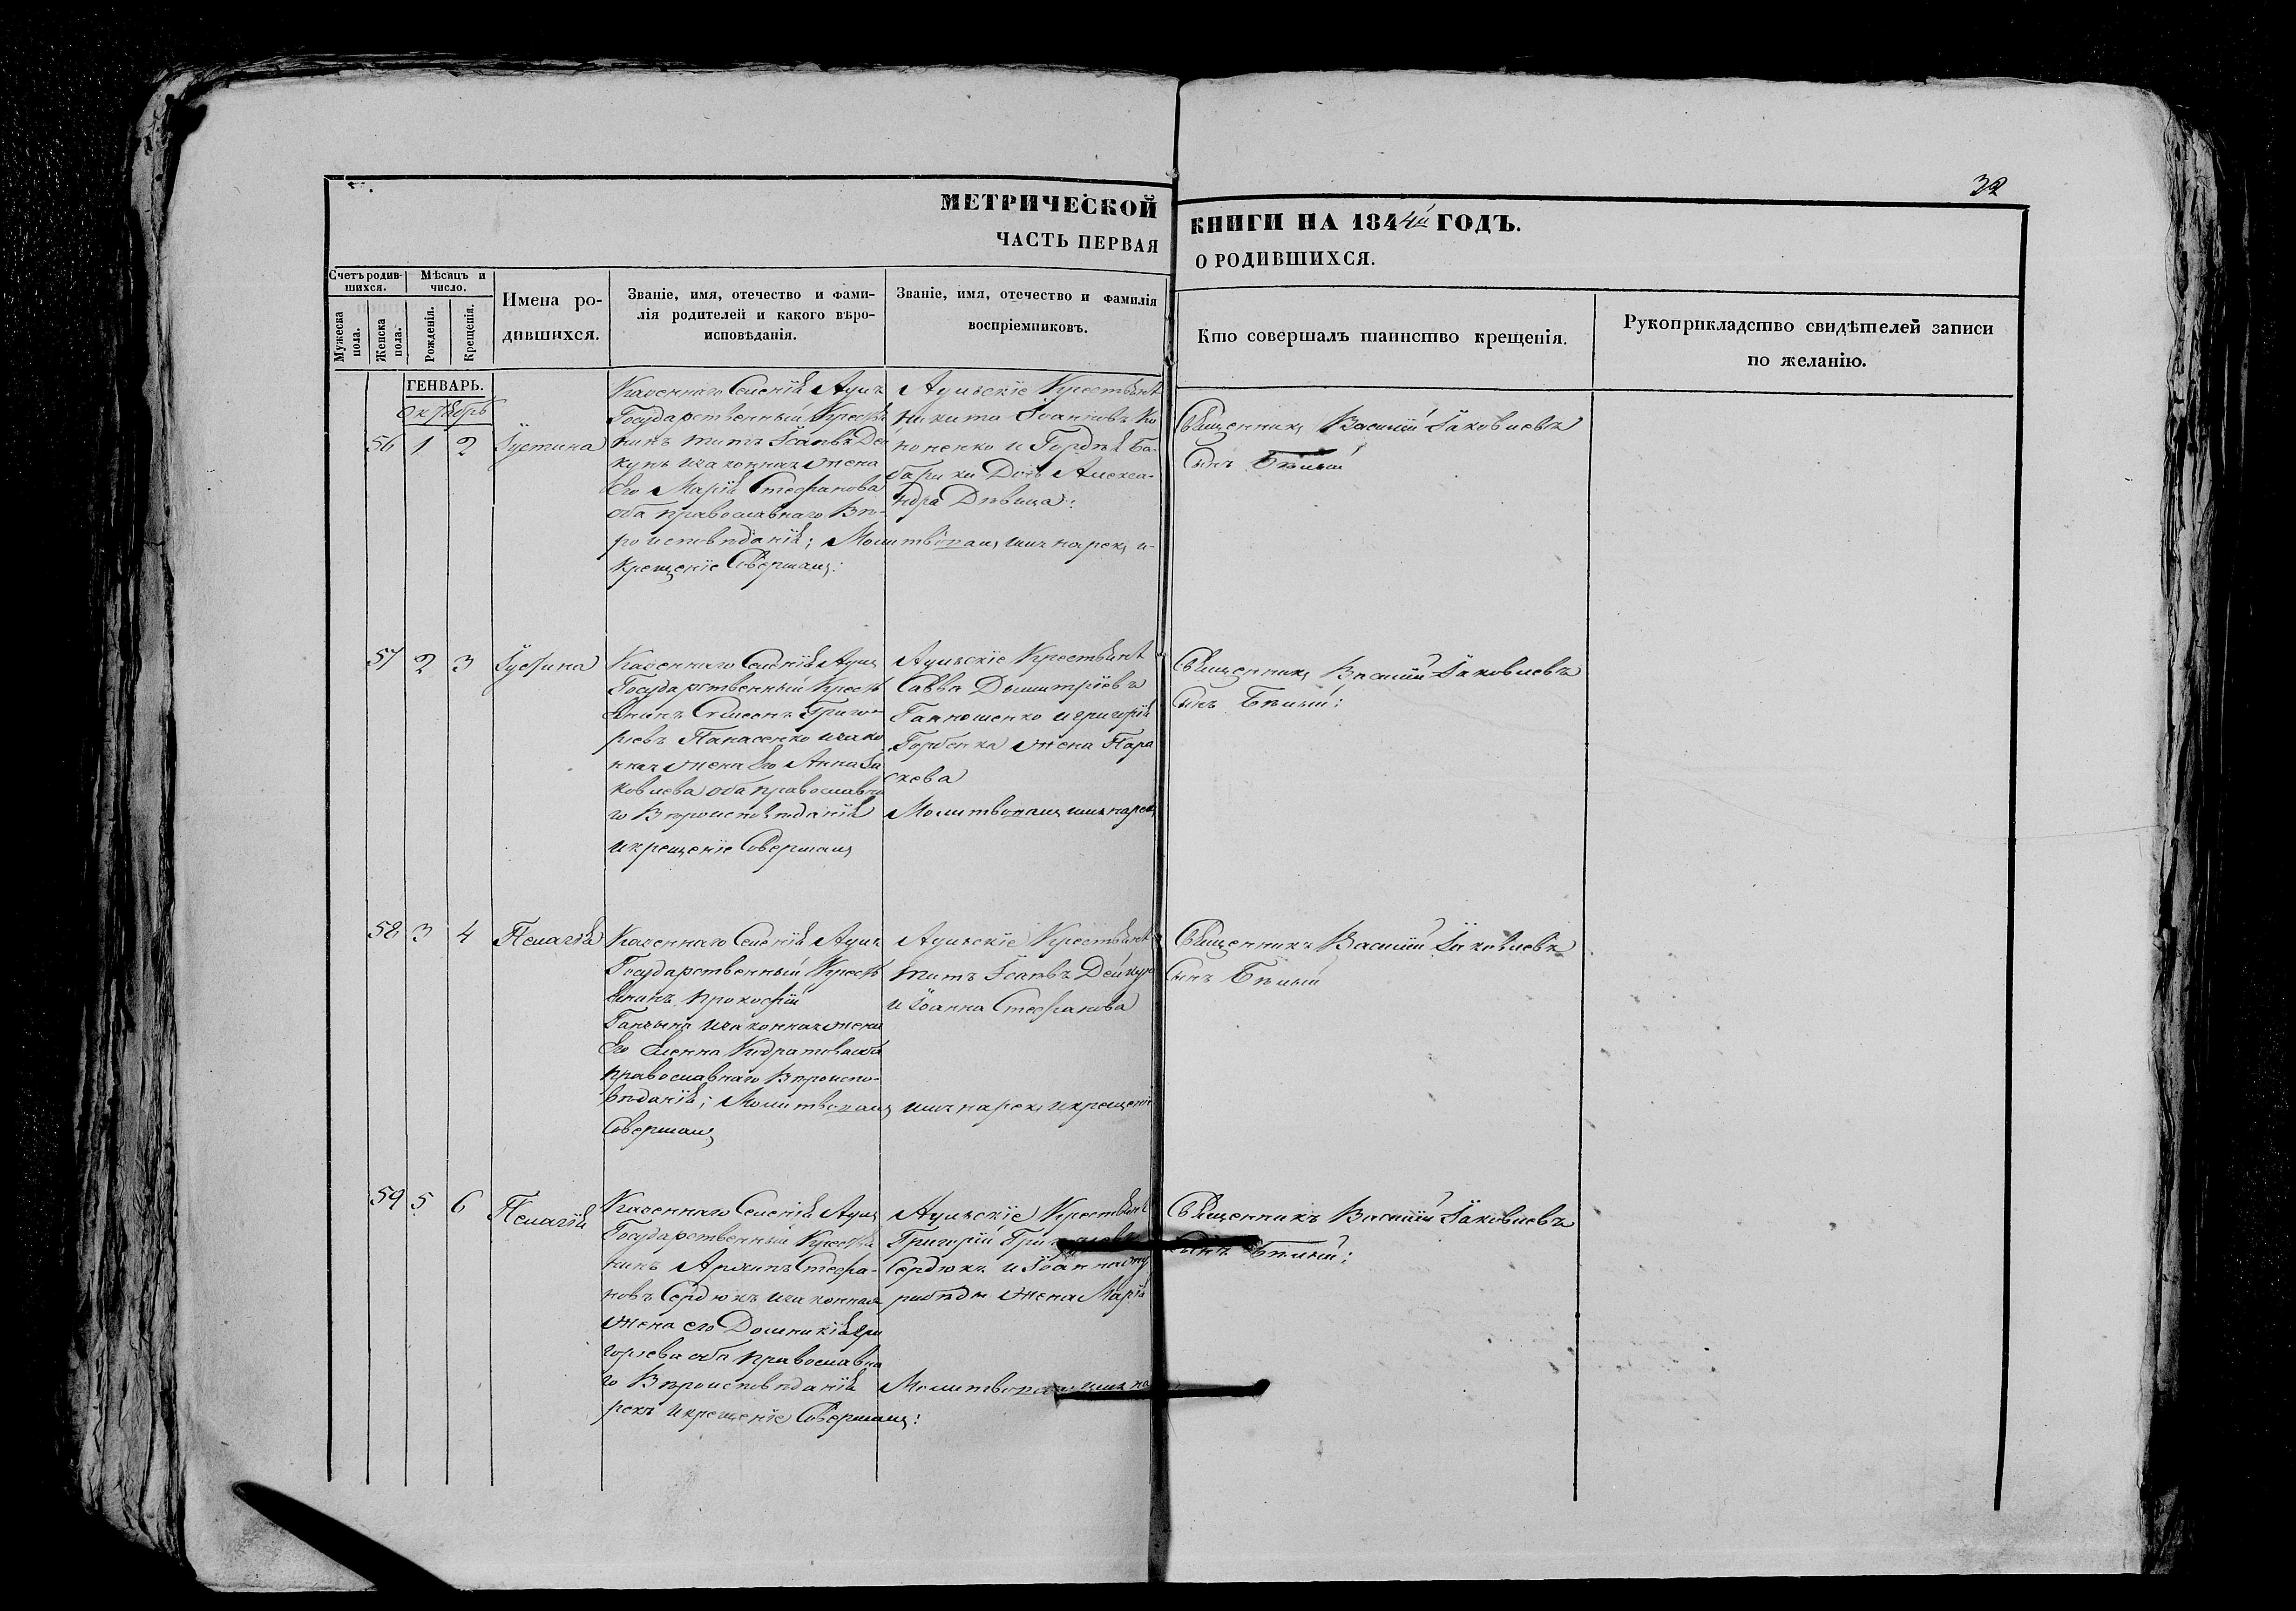 32
МЕТРИЧЕСКОЙ
ЧАСТЬ ПЕРВАЯ
КНИГИ НА 1844й ГОДЪ.
О РОДИВШИХСЯ.
Счетъ родив-
шихся.
Мужеска
пола.
Женска
пола.
Мѣсяцъ и
число.
Рожденія.
Крещенія.
Имена ро-
дившихся.
Званіе, имя, отечество и фами-
лія родителей и какого вѣро-
исповѣданія.
Званіе, имя, отечество и фамилія
воспріемниковъ.
Кто совершалъ таинство крещенія.
Рукоприкладство свидѣтелей записи
по желанію.
ГЕНВАРЬ.
Октябрь
56 1 2 Іустина
Казеннаго Селенія
Государственный Крестья
нинъ Титъ Ісаевъ Дей
кунъ изаконная жена
Его Марія Стефанова
оба православнаго Вѣ-
роисповѣданія; Молитвовалъ имя нарекъ и
крещеніе Совершалъ:
Крестьяне
Никита Іоанновъ Ко
ноненко и Гордѣя Ба-
Дочь Алекса-
ндра Дѣвица:
Священникъ Василій Іаковлевъ
Сынъ Бѣлый
57 2 3 Іустина
Казеннаго Селенія
Государственный Кресть
янинъ Симеонъ Григо
рьевъ Панасенко изако
нная жена Его Анна Іа
ковлева оба православна
го Вѣроисповѣданія
икрещеніе Совершалъ
Крестьяне
Савва Дымитріевъ
игригорія
жена Пара
скева
Молитвовалъ имя нарекъ
Священникъ Василій Іаковлевъ
Сынъ Бѣлый:
58 3 4 Пелагія
Казеннаго Селенія
Государственный Кресть
янинъ Прокофій
изаконная жена
Его Елена
православнаго Вѣроиспо-
вѣданія; Молитвовалъ имя нарекъ икрещеніе
Совершалъ
Крестьяне
Титъ Ісаевъ Дейкун
и Іоанна Стефанова
Священникъ Василій Іаковлевъ
Сынъ Бѣлый
59 5 6 Пелагія
Казеннаго Селенія
Государственный Крестья
нинъ Архипъ Стефа-
новъ Сердюкъ изаконная
жена его Домникія Гри
горьева оба православна
го Вѣроисповѣданія Молитвовалъ имя на
рекъ икрещеніе Совершалъ:
Крестьяне
Григорій
Сердюкъ и Іоанна
жена Марія
Священникъ Василій Іаковлевъ
Сынъ Бѣлый: